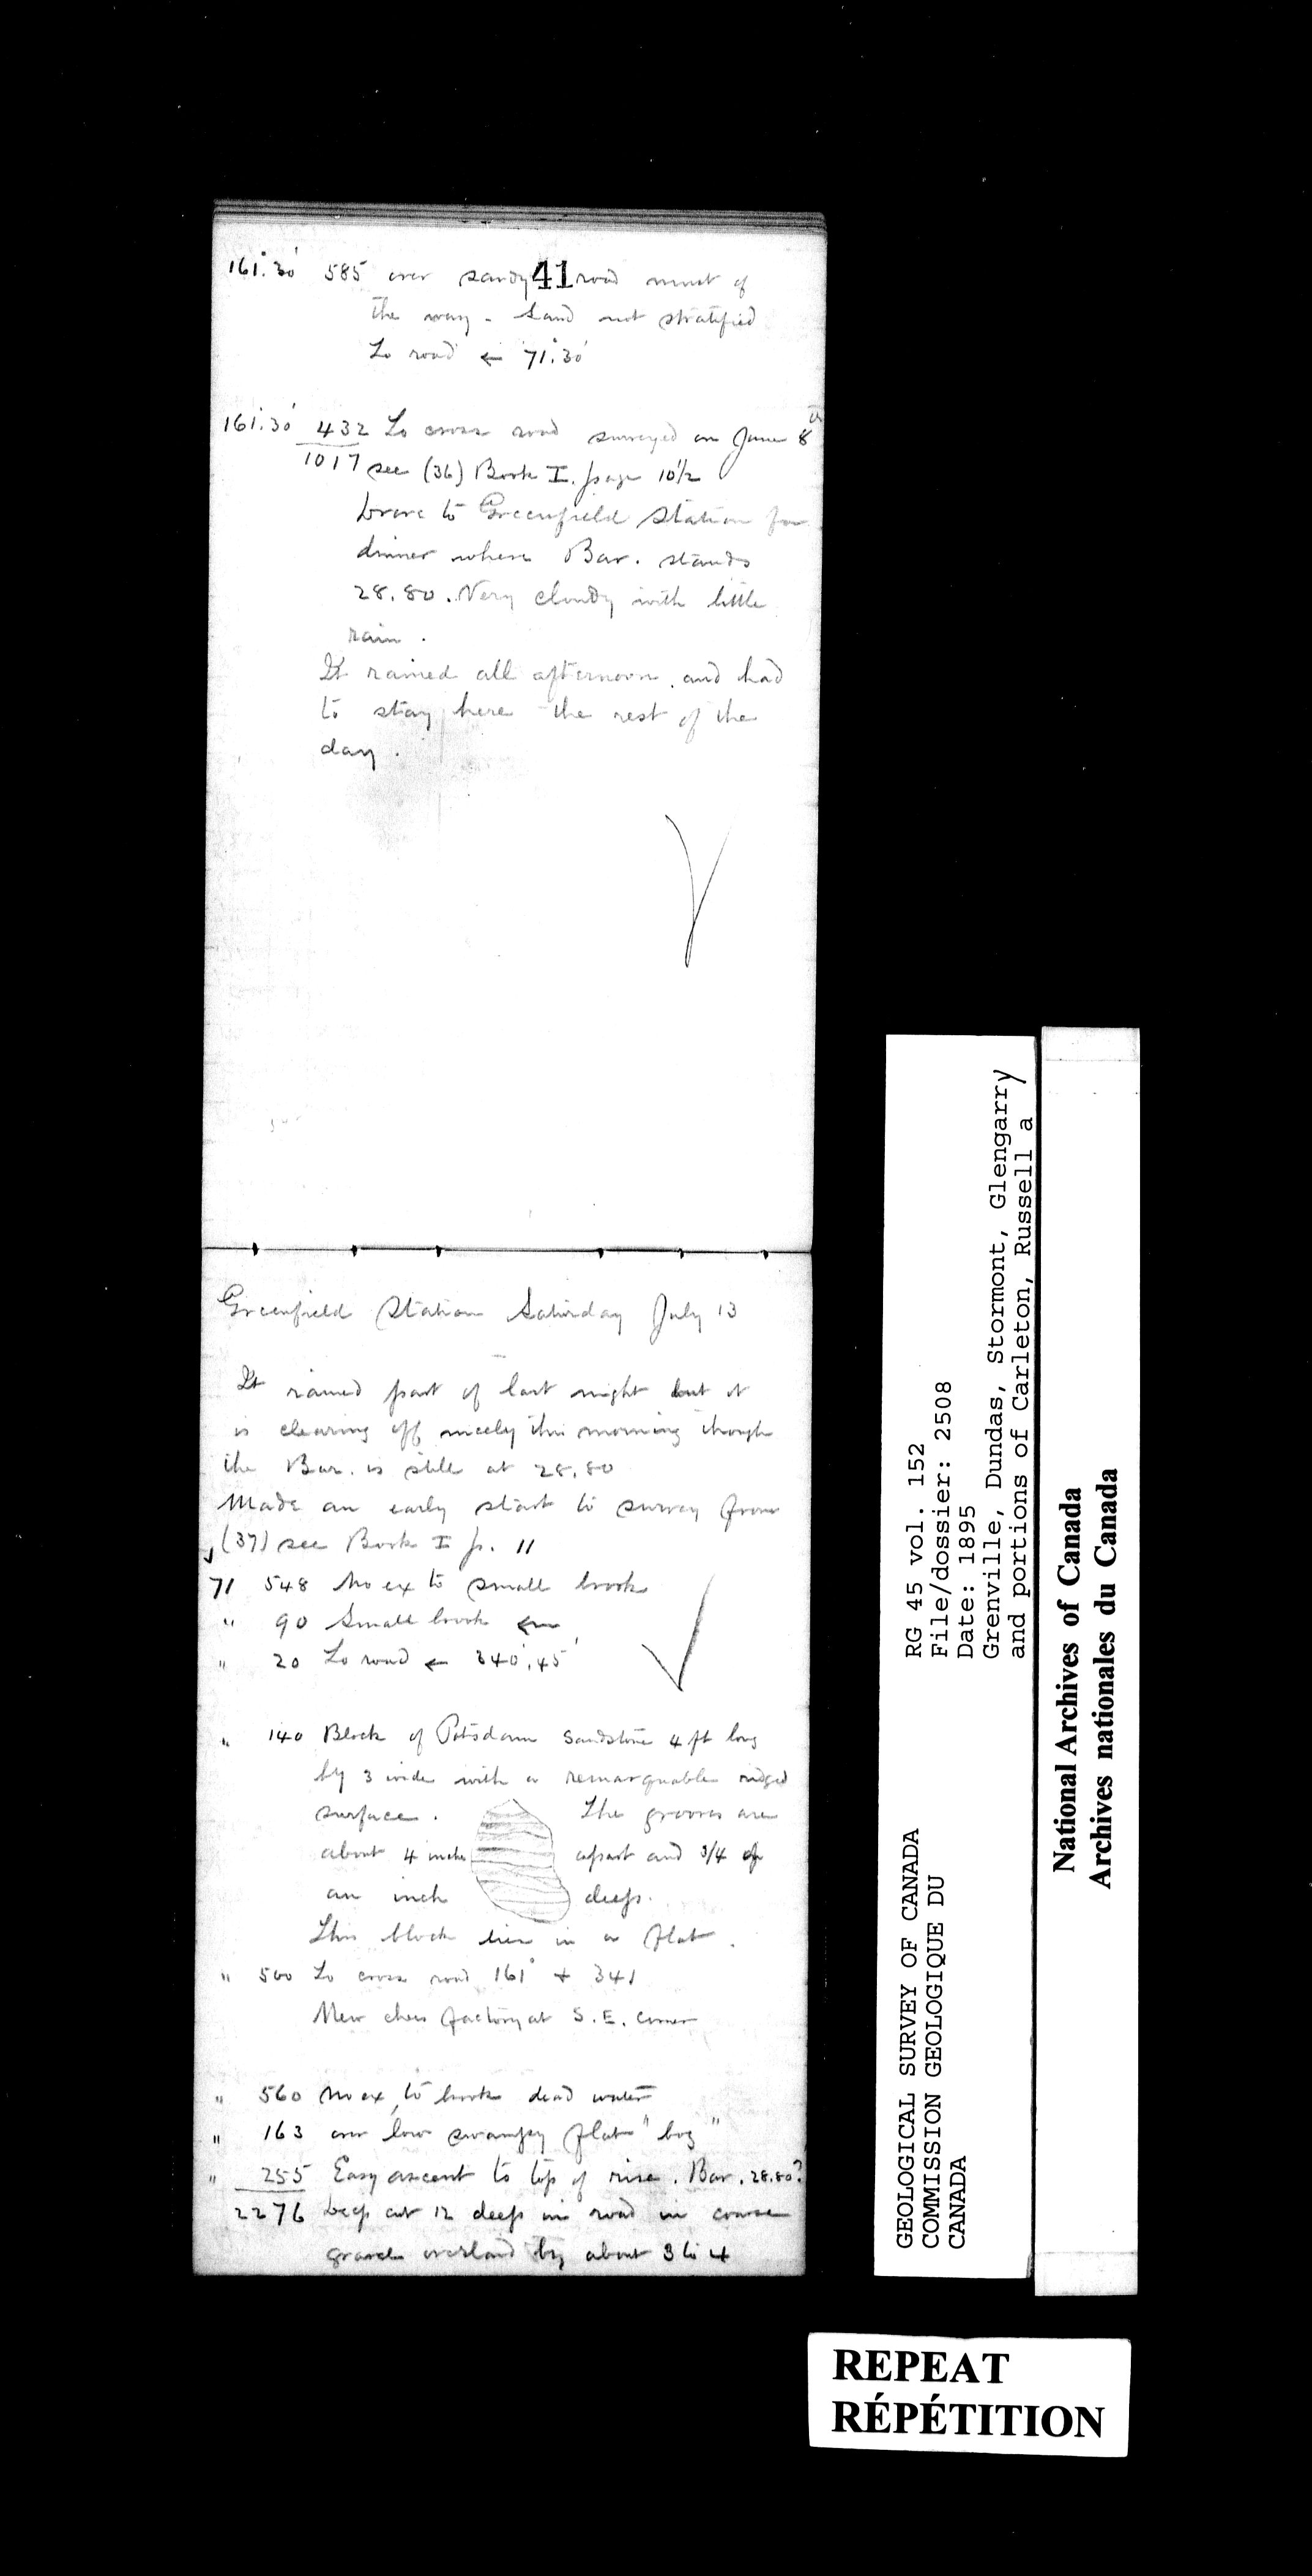 41
161°.30' 585 over sandy road most of
the way - Sand not stratified
To road ← 71°.30'
161°.30' 432 To cross road surveyed on June 8th
1017 see (36) Book I. page 10½
Drove to Greenfield Station for
dinner where Bar. stands
28.80. Very cloudy with little
rain.
It rained all afternoon and had
to stay here the rest of the
day.
Greenfield Station Saturday July 13
It rained part of last night but it
is clearing off nicely this morning though
the Bar. is still at 28.80
Made an early start to survey from
(37) see Book I p. 11
71 548 No ex to small brook
" 90 Small brook ←
" 20 To road ← 340°.45'
" 140 Block of Potsdam Sandstone 4 ft long
by 3 wide with a remarquable ridged
surface. The grooves are
about 4 inches apart and 3/4 of
an inch deep.
This block lies in a flat.
" 500 To cross road 161° + 341
New chees factory at S.E. corner
" 560 No ex, to brook dead water
" 163 over low swampy flat "bog"
" 255 Easy ascent to top of rise. Bar. 28.80?
2276 Deep cut 12 deep in road in coarse
gravel overlaid by about 3 to 4
GEOLOGICAL SURVEY OF CANADA
COMMISSION GEOLOGIQUE DU
CANADA
RG 45 vol. 152
File/dossier: 2508
Date: 1895
Grenville, Dundas, Stormont, Glengarry
and portions of Carleton, Russell a
National Archives of Canada
Archives nationales du Canada
REPEAT
RÉPÉTITION